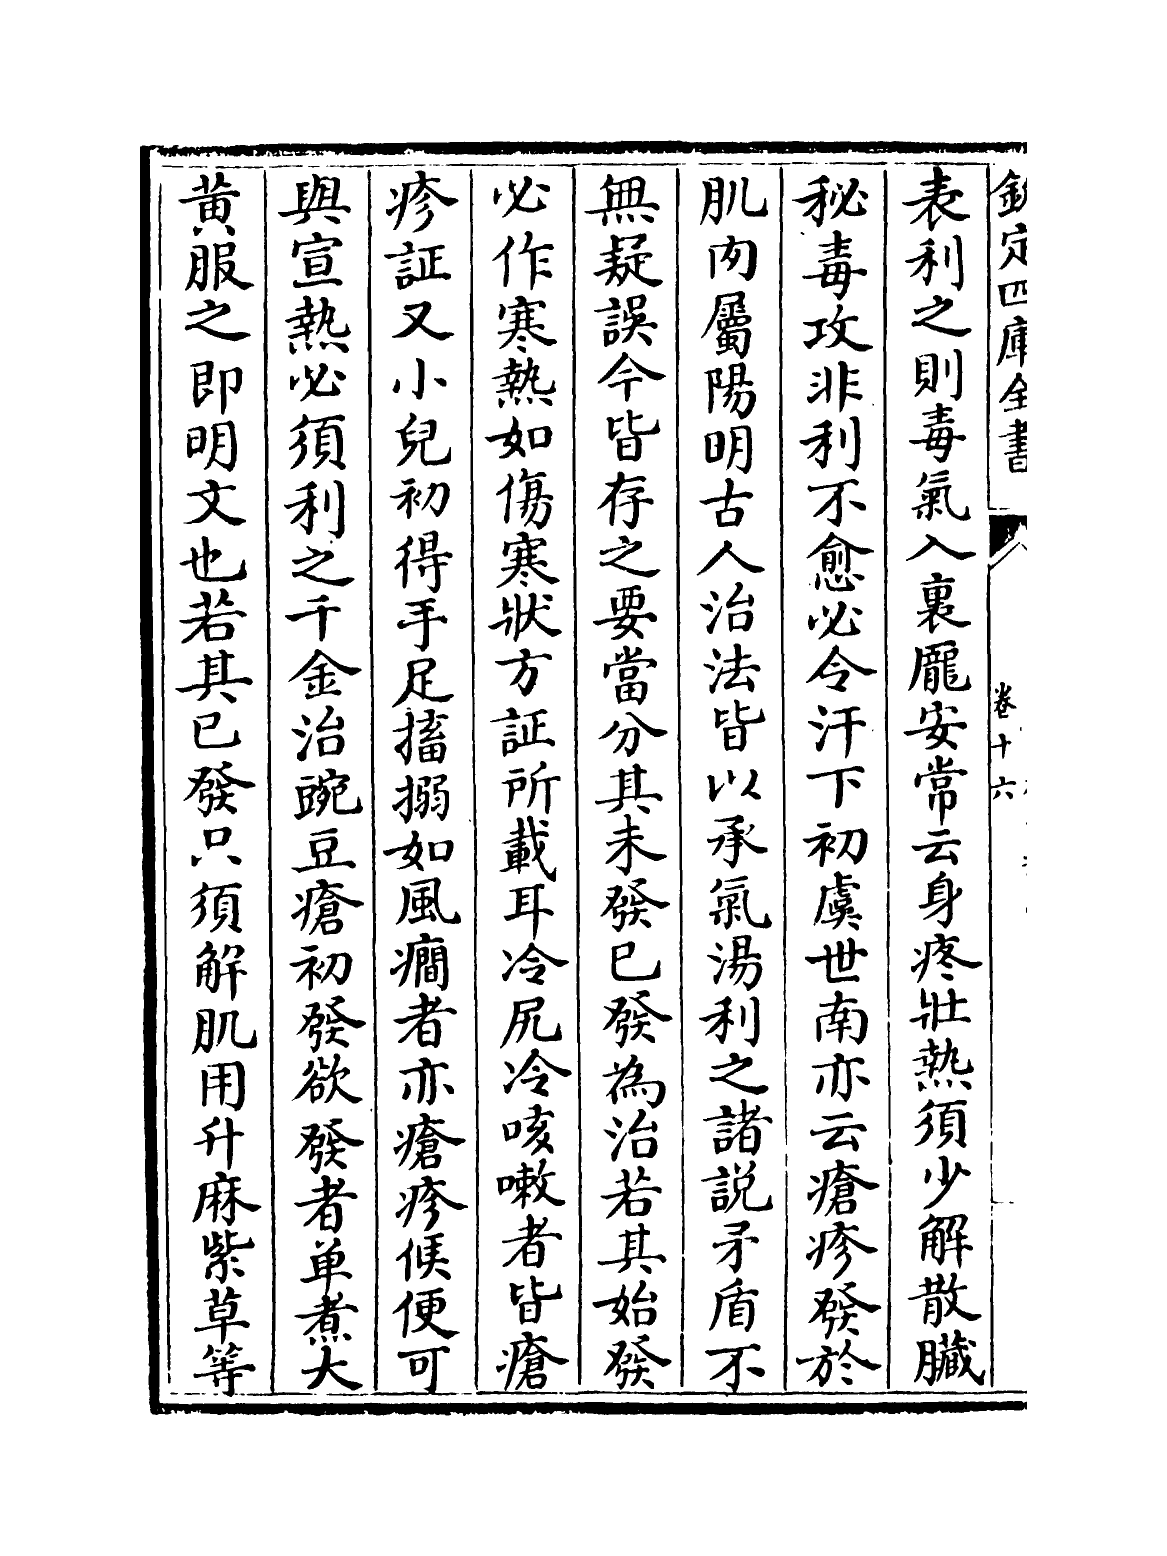 欽定四庫全書
卷十六
表利之則毒氣入裏龐安常云身疼壯熱須少解散臟
秘毒攻非利不愈必令汗下初虞世南亦云瘡疹發於
肌肉屬陽明古人治法皆以承氣湯利之諸説矛盾不
無疑誤今皆存之要當分其未發已發為治若其始發
必作寒熱如傷寒狀方証所載耳冷尻冷咳嗽者皆瘡
疹証又小兒初得手足搐搦如風癎者亦瘡疹候便可
與宣熱必須利之千金治豌豆瘡初發欲發者单煮大
黃服之即明文也若其已發只須解肌用升麻紫草等